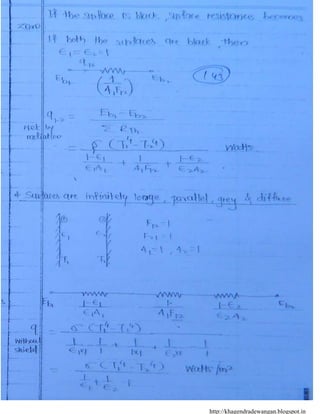 If the surface is black, surface resistance becomes
zero
If both the surfaces are black, then
ε₁ = ε₂ = 1
q₁₂
Eb₁ (1/A₁F₁₂) Eb₂
143
q₁₋₂ = (Eb₁ − Eb₂) / Σ Rth
Net by
radiation
= σ (T₁⁴ − T₂⁴) / ((1−ε₁)/(ε₁A₁) + 1/(A₁F₁₂) + (1−ε₂)/(ε₂A₂)) Watts
* Surfaces are infinitely large, parallel, grey & diffuse
① ②
F₁₂ = 1
ε₁ F₂₁ = 1
A₁ = 1, A₂ = 1
T₁ T₂
Eb₁ (1−ε₁)/(ε₁A₁) 1/(A₁F₁₂) (1−ε₂)/(ε₂A₂) Eb₂
q = σ (T₁⁴ − T₂⁴)
without
shield
= σ (T₁⁴ − T₂⁴) / (1/ε₁ + 1/ε₂ − 1) Watts/m²
http://khagendradewangan.blogspot.in